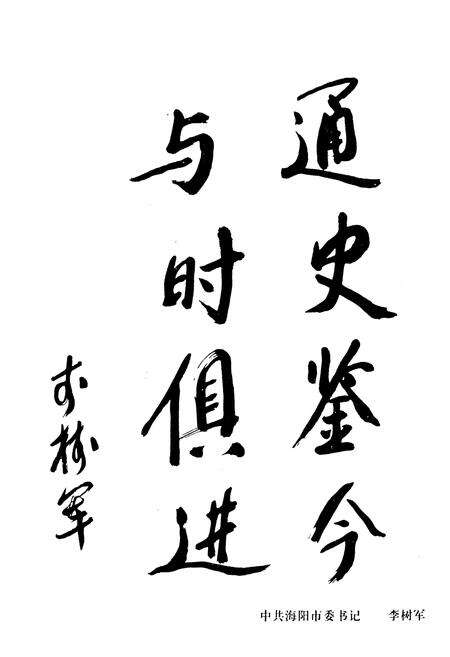 通史鉴今
与时俱进
李树军
中共海阳市委书记 李树军